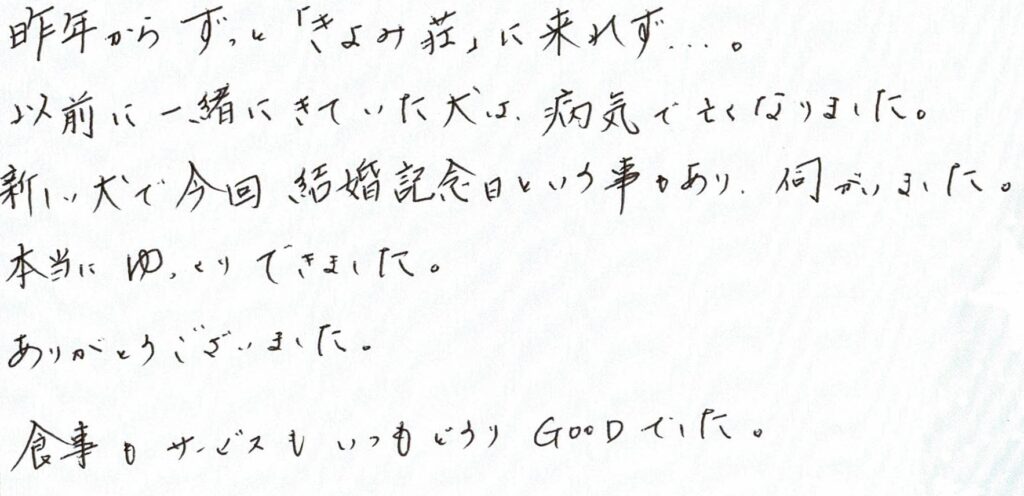 昨年から ずっと「きよみ荘」に来れず…。
以前に一緒にきていた犬は、病気で亡くなりました。
新しい犬で今回 結婚記念日という事もあり、伺がいました。
本当に ゆっくりできました。
ありがとうございました。
食事もサービスもいつもどうり GOODでした。